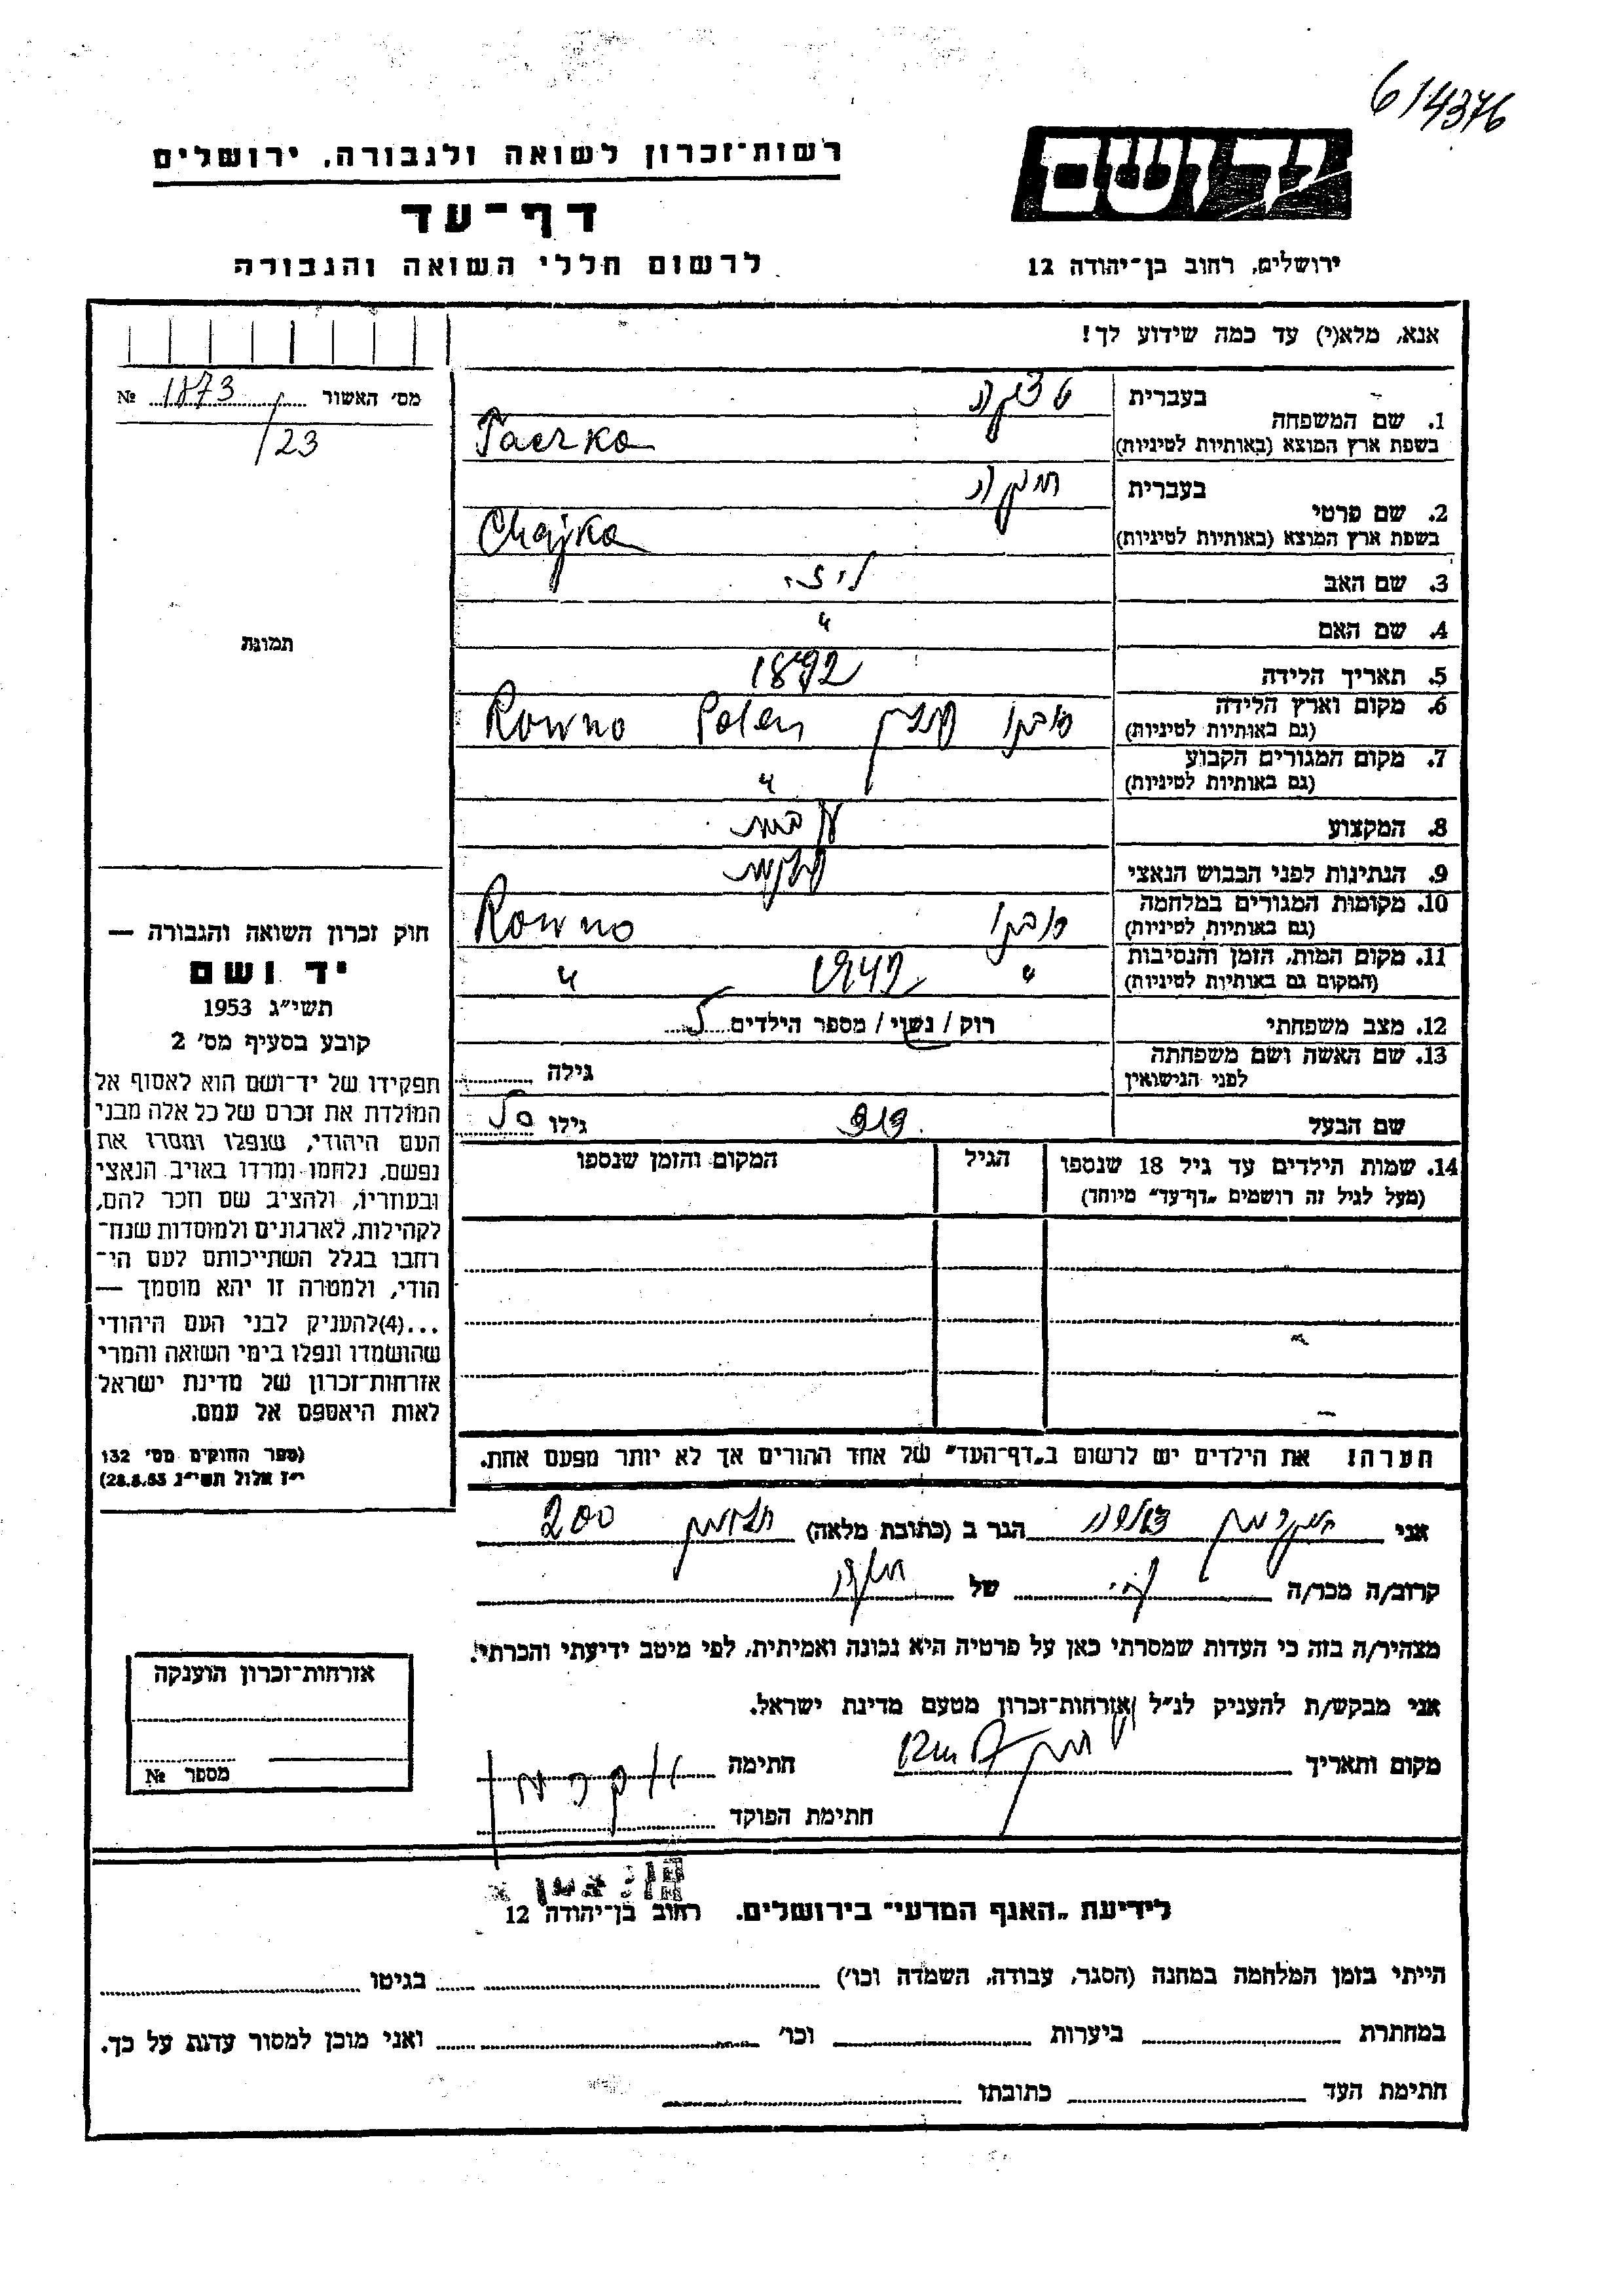 6/4376
רשות־זכרון לשואה ולגבורה, ירושלים
יד ושם
דף־עד
לרשום חללי השואה והגבורה
ירושלים, רחוב בן־יהודה 12
אנא, מלא(י) עד כמה שידוע לך!
מס' האשור 1873 №
/23
תמונת
1. שם המשפחה
בעברית
בשפת ארץ המוצא (באותיות לטיניות)
2. שם פרטי
בעברית
בשפת ארץ המוצא (באותיות לטיניות) Chajka
3. שם האב
4. שם האם "
5. תאריך הלידה 1892
6. מקום וארץ הלידה
(גם באותיות לטיניות) רובנו פולין Polen Rowno
7. מקום המגורים הקבוע
(גם באותיות לטיניות) "
8. המקצוע
9. הנתינות לפני הכבוש הנאצי
10. מקומות המגורים במלחמה
(גם באותיות לטיניות) רובנו Rowno
11. מקום המות, הזמן והנסיבות
(המקום גם באותיות לטיניות) " 1942 "
12. מצב משפחתי רוק / נשוי / מספר הילדים 5
13. שם האשה ושם משפחתה
לפני הנישואין גילה
שם הבעל גילו 50
14. שמות הילדים עד גיל 18 שנספו
(מעל לגיל זה רושמים „דף־עד" מיוחד)
הגיל
המקום והזמן שנספו
חוק זכרון השואה והגבורה —
יד ושם
תשי"ג 1953
קובע בסעיף מס' 2
תפקידו של יד־ושם הוא לאסוף אל
המולדת את זכרם של כל אלה מבני
העם היהודי, שנפלו ומסרו את
נפשם, נלחמו ומרדו באויב הנאצי
ובעוזריו, ולהציב שם וזכר להם,
לקהילות, לארגונים ולמוסדות שנח־
רבו בגלל השתייכותם לעם הי־
הודי, ולמטרה זו יהא מוסמך —
...(4)להעניק לבני העם היהודי
שהושמדו ונפלו בימי השואה והמרי
אזרחות־זכרון של מדינת ישראל
לאות היאספם אל עמם.
(ספר החוקים מס' 132
י"ז אלול תשי"ג 28.8.53)
הערה! את הילדים יש לרשום ב„דף־העד" של אחד ההורים אך לא יותר מפעם אחת.
אני הגר ב (כתובת מלאה) 200
קרוב/ה מכר/ה של
מצהיר/ה בזה כי העדות שמסרתי כאן על פרטיה היא נכונה ואמיתית, לפי מיטב ידיעתי והכרתי.
אני מבקש/ת להעניק לנ"ל אזרחות־זכרון מטעם מדינת ישראל.
מקום ותאריך חתימה
חתימת הפוקד
אזרחות־זכרון הוענקה
מספר №
לידיעת „האגף המדעי" בירושלים. רחוב בן־יהודה 12
הייתי בזמן המלחמה במחנה (הסגר, עבודה, השמדה וכו') בגיטו
במחתרת ביערות וכו' ואני מוכן למסור עדות על כך.
חתימת העד כתובתו